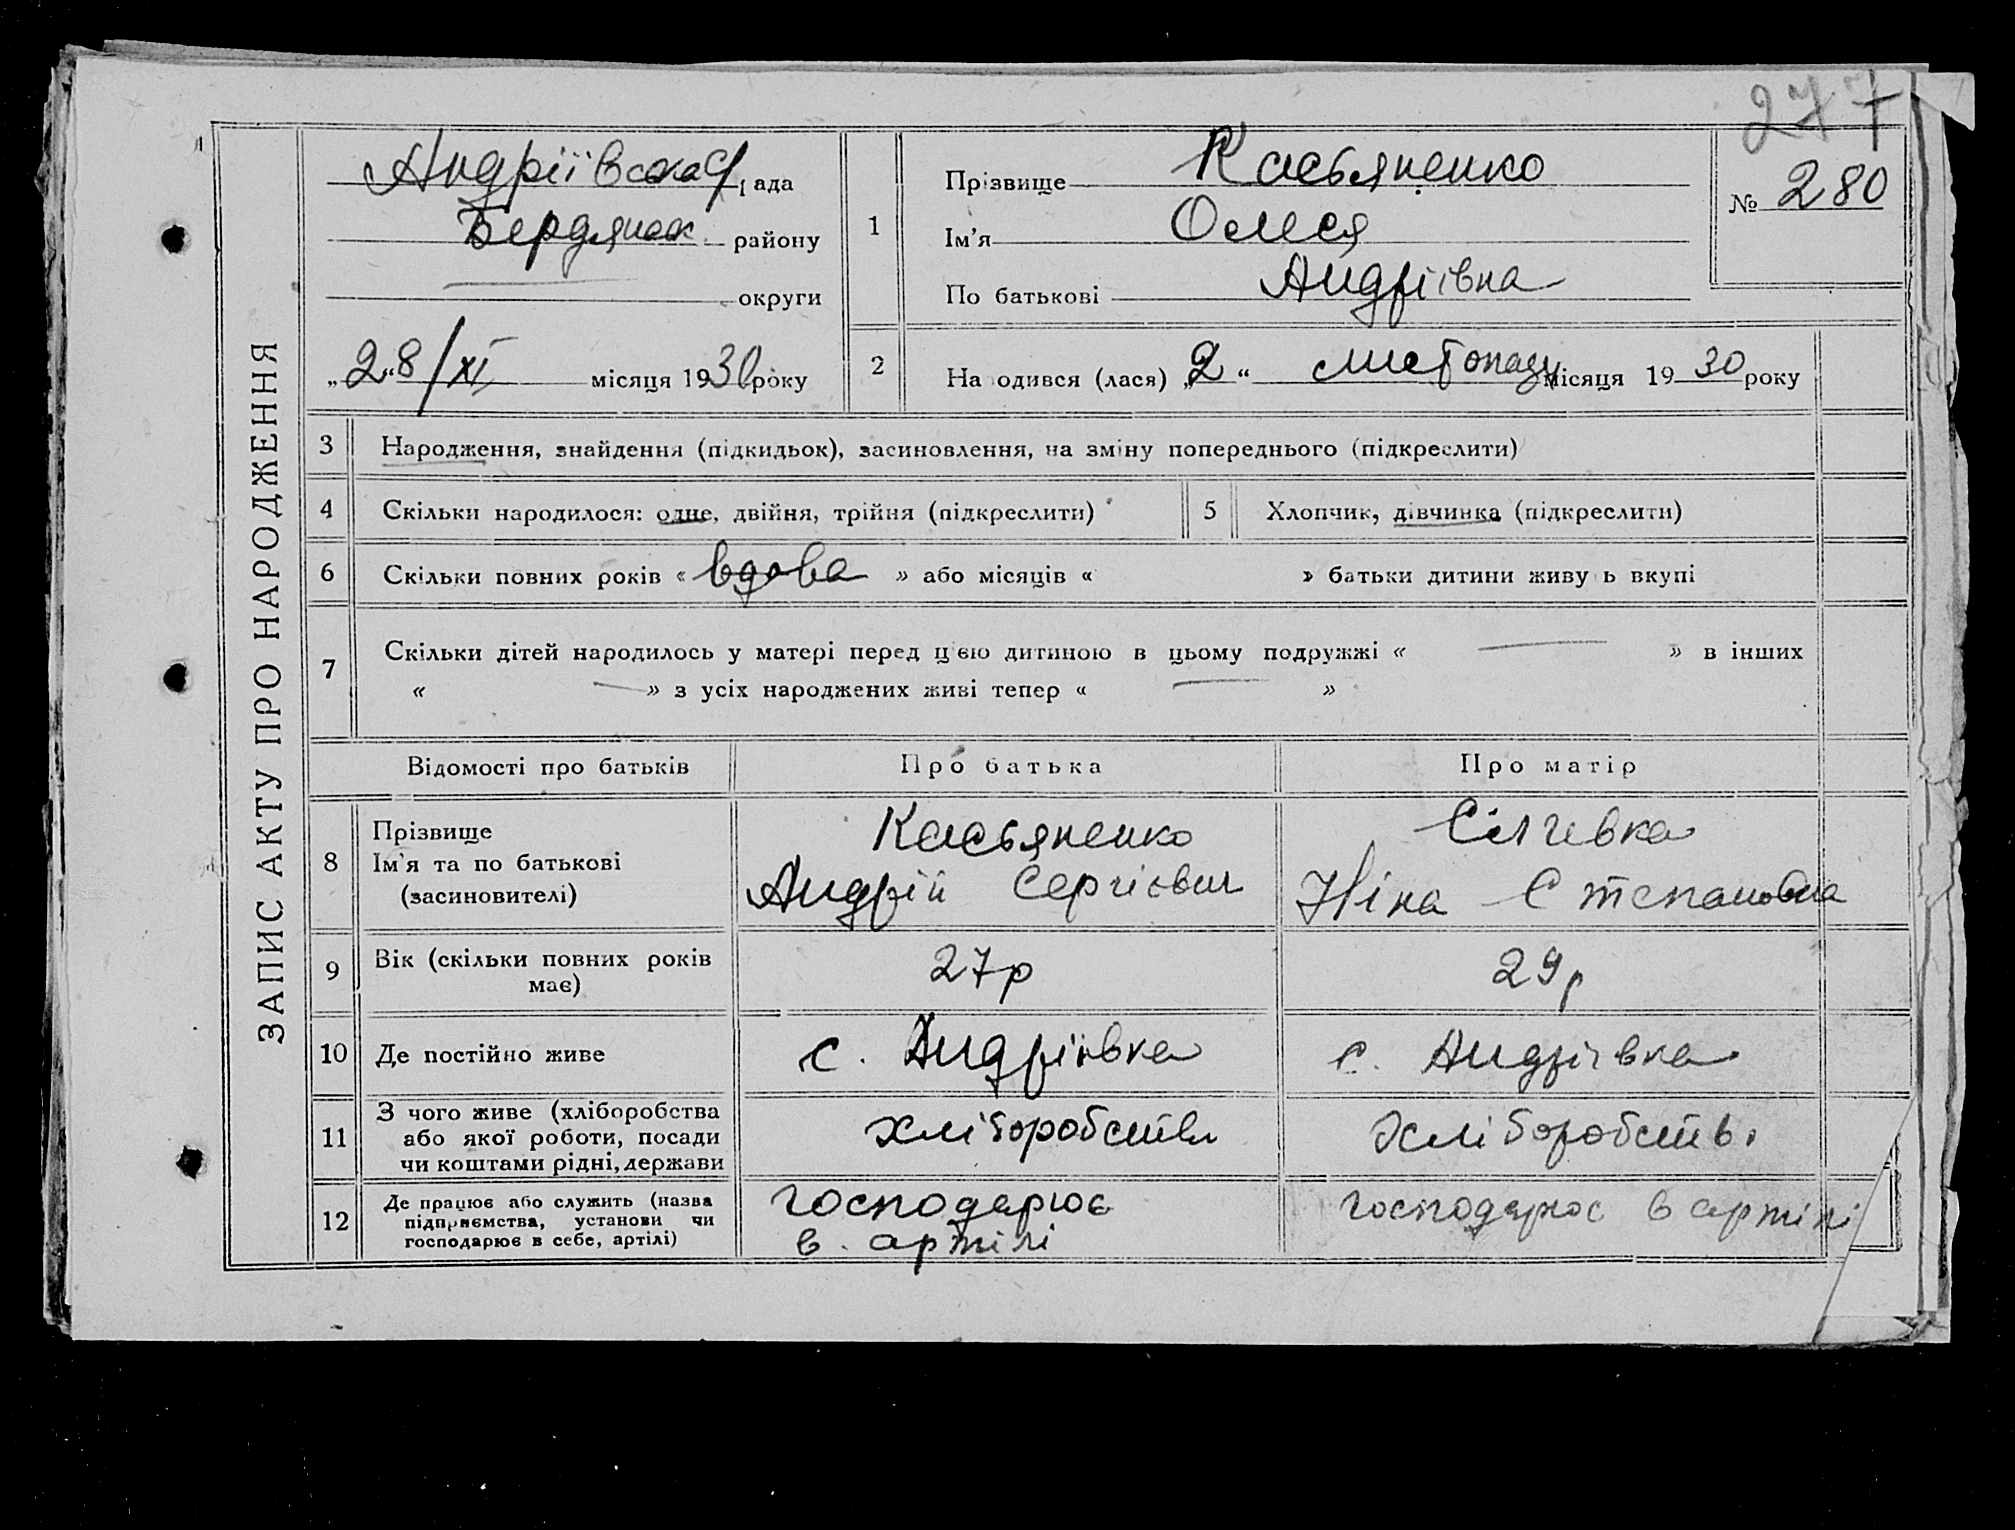 277
ЗАПИС АКТУ ПРО НАРОДЖЕННЯ
Андріївська рада
Бердянськ. району
округи
„28/XI“ місяця 1930 року
1
Прізвище Касьяненко
Ім'я Олеся
По батькові Андріівна
№ 280
2
На одився (лася) „2“ листопаду місяця 1930 року
3 Народження, знайдення (підкидьок), засиновлення, на зміну попереднього (підкреслити)
4 Скільки народилося: одне, двійня, трійня (підкреслити)
5 Хлопчик, дівчинка (підкреслити)
6 Скільки повних років « вдова » або місяців « » батьки дитини живу ь вкупі
7 Скільки дітей народилось у матері перед цією дитиною в цьому подружжі « — » в інших
« — » з усіх народжених живі тепер « — »
Відомості про батьків Про батька Про матір
8 Прізвище
Ім'я та по батькові
(засновителі)
Касьяненко
Андрій Сергієвич
Ніна Степановна
9 Вік (скільки повних років
має)
27р
29р
10 Де постійно живе
с. Андріівка
с. Андріівка
11 З чого живе (хліборобства
або якої роботи, посади
чи коштами рідні, держави
хліборобства
хліборобств.
12 Де працює або служить (назва
підприємства, установи чи
господарює в себе, артілі)
господарює
в. артілі
господарює в артілі